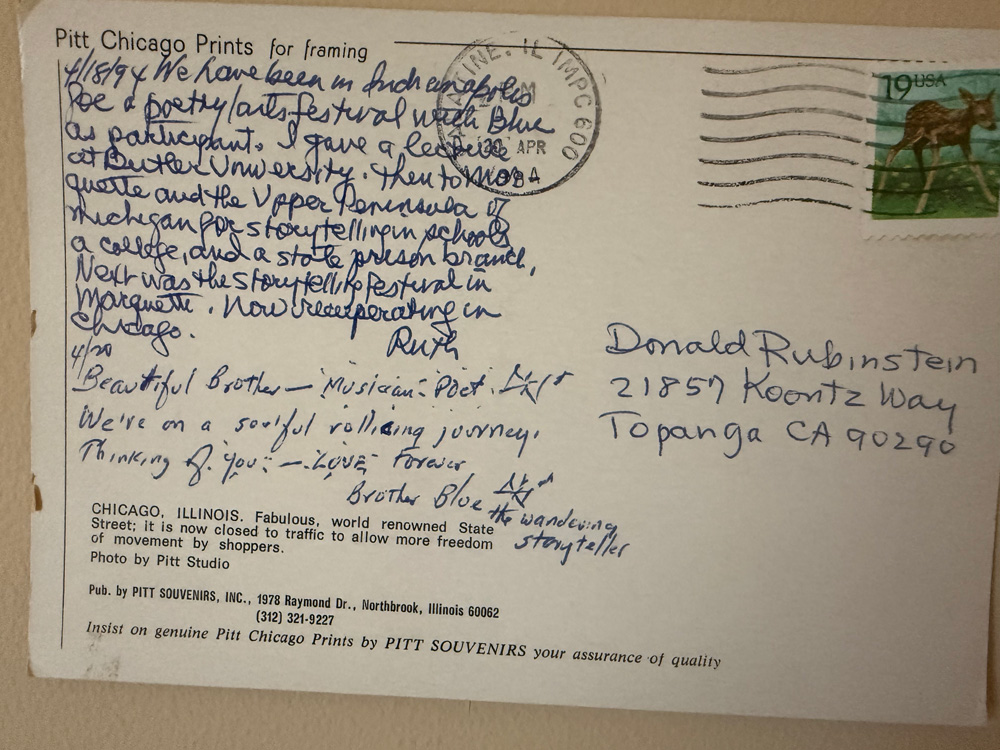 Pitt Chicago Prints for framing
4/18/94 We have been in Indianapolis
for a poetry/arts festival with Blue
as participant. I gave a lecture
at Butler University. Then to Mar-
quette and the Upper Peninsula of
Michigan for storytelling in schools,
a college, and a state prison branch.
Next was the storytelling festival in
Marquette. Now recuperating in
Chicago.
Ruth
4/20
Beautiful Brother — Musician-Poet.
We're on a soulful rollicing journey.
Thinking of you: — LOVE Forever
Brother Blue
the wandering
storyteller
CHICAGO, ILLINOIS. Fabulous, world renowned State
Street; it is now closed to traffic to allow more freedom
of movement by shoppers.
Photo by Pitt Studio
Pub. by PITT SOUVENIRS, INC., 1978 Raymond Dr., Northbrook, Illinois 60062
(312) 321-9227
Insist on genuine Pitt Chicago Prints by PITT SOUVENIRS your assurance of quality
TINE, IL IMPC 600
PM
20 APR
1994
19 USA
Donald Rubinstein
21857 Koontz Way
Topanga CA 90290